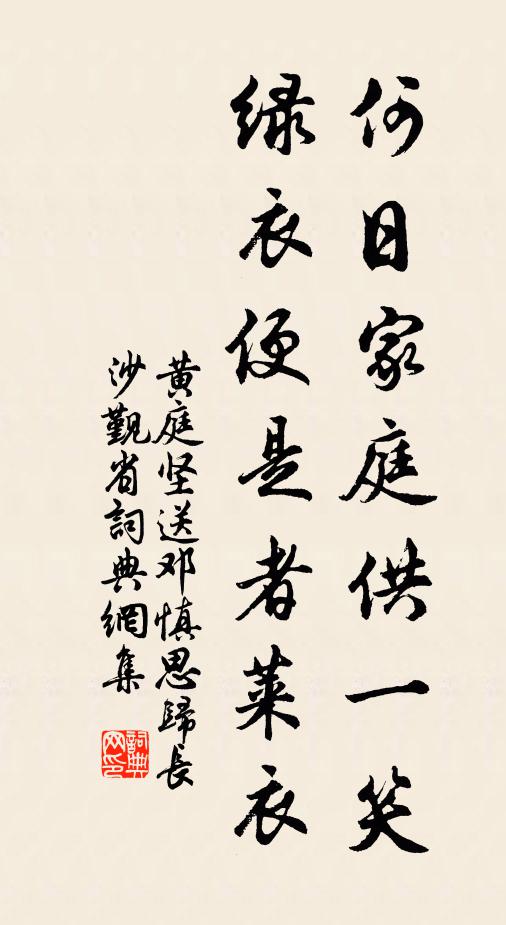 何日家庭供一笑
緑衣便是者莱衣
黄庭坚送邓慎思歸長
沙觐省詞典網集
詞典网印